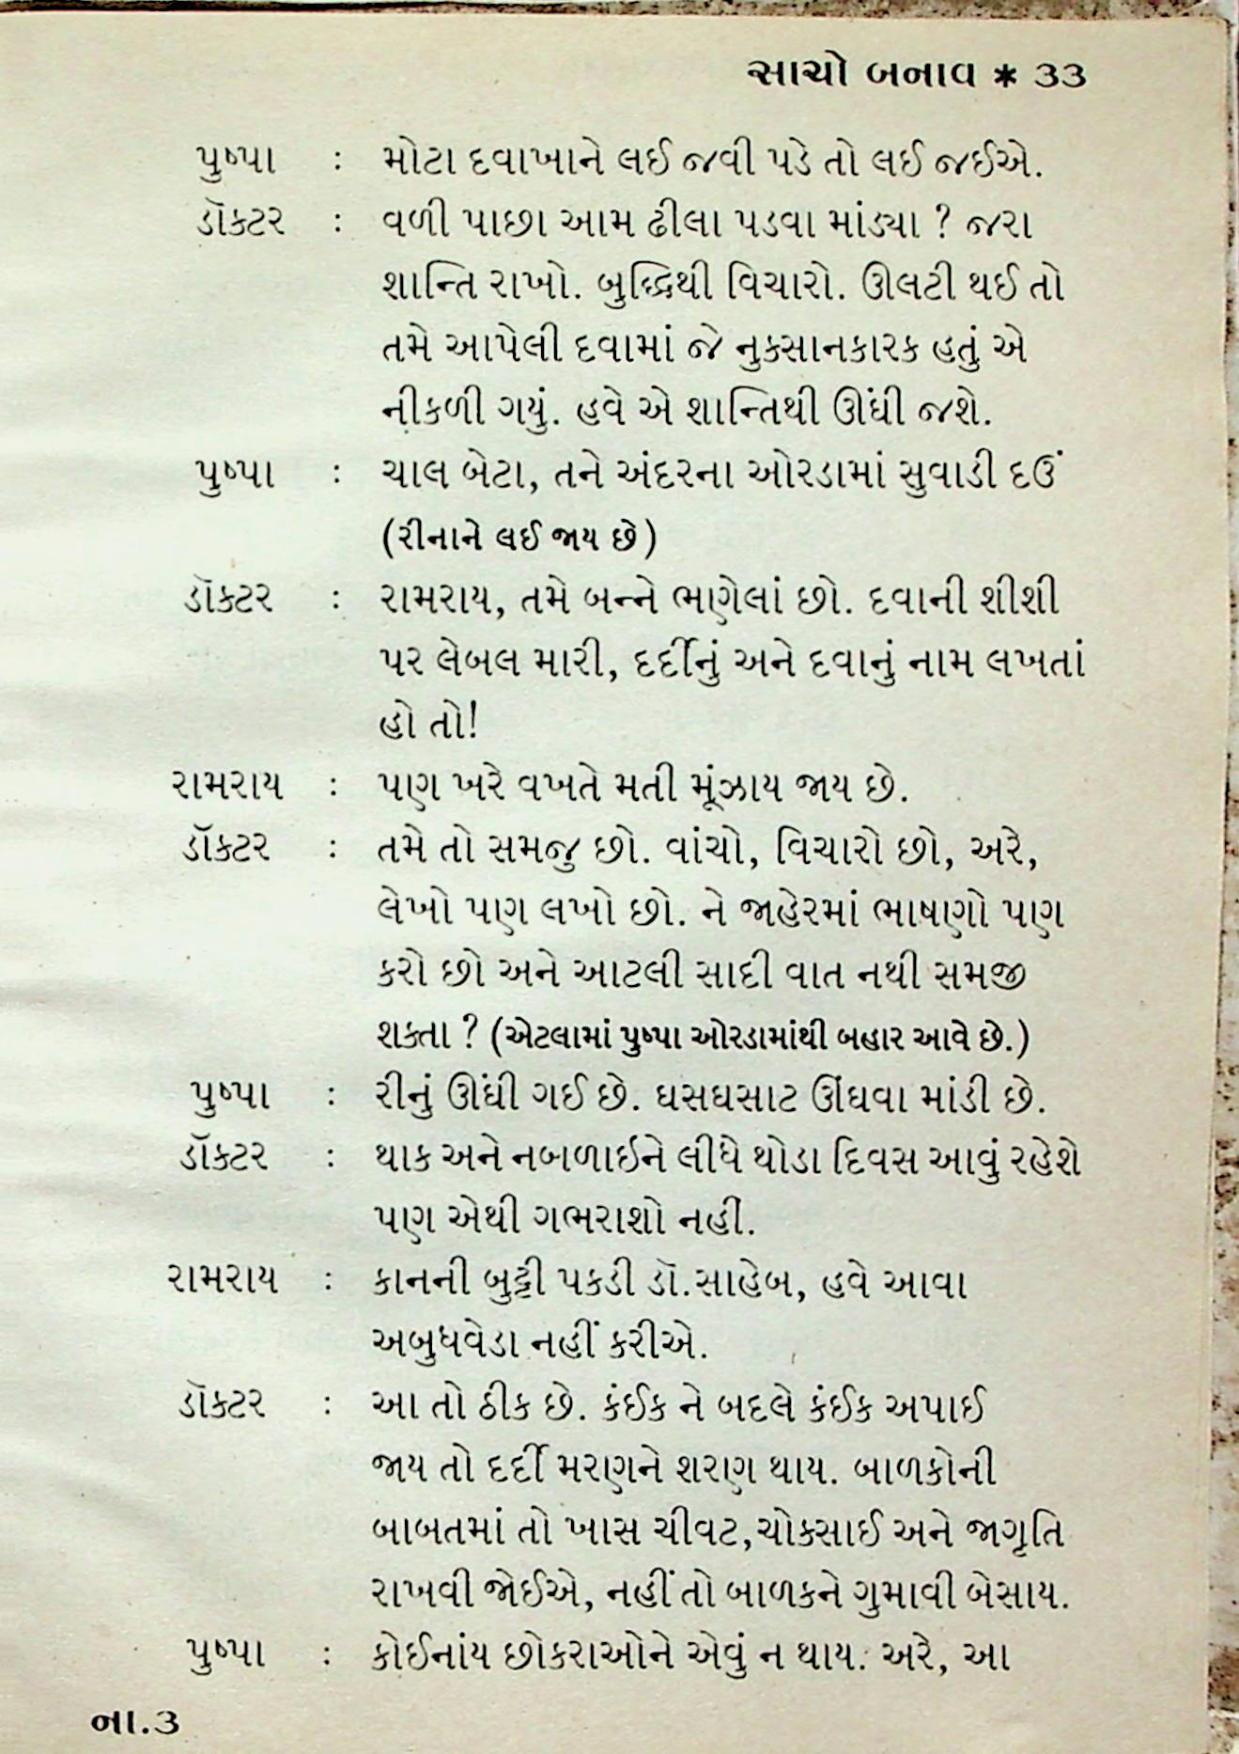 સાચો બનાવ * 33
પુષ્પા : મોટા દવાખાને લઈ જવી પડે તો લઈ જઈએ.
ડૉક્ટર : વળી પાછા આમ ઢીલા પડવા માંડ્યા ? જરા
શાન્તિ રાખો. બુદ્ધિથી વિચારો. ઊલટી થઈ તો
તમે આપેલી દવામાં જે નુકસાનકારક હતું એ
નીકળી ગયું. હવે એ શાન્તિથી ઊંઘી જશે.
પુષ્પા : ચાલ બેટા, તને અંદરના ઓરડામાં સુવાડી દઉં
(રીનાને લઈ જાય છે)
ડૉક્ટર : રામરાય, તમે બન્ને ભણેલાં છો. દવાની શીશી
પર લેબલ મારી, દર્દીનું અને દવાનું નામ લખતાં
હો તો!
રામરાય : પણ ખરે વખતે મતી મૂંઝાય જાય છે.
ડૉક્ટર : તમે તો સમજુ છો. વાંચો, વિચારો છો, અરે,
લેખો પણ લખો છો. ને જાહેરમાં ભાષણો પણ
કરો છો અને આટલી સાદી વાત નથી સમજી
શક્તા ? (એટલામાં પુષ્પા ઓરડામાંથી બહાર આવે છે.)
પુષ્પા : રીનું ઊંઘી ગઈ છે. ઘસઘસાટ ઊંઘવા માંડી છે.
ડૉક્ટર : થાક અને નબળાઇને લીધે થોડા દિવસ આવું રહેશે
પણ એથી ગભરાશો નહી.
રામરાય : કાનની બુટ્ટી પકડી ડૉ.સાહેબ, હવે આવા
અબુધવેડા નહીં કરીએ.
ડૉક્ટર : આ તો ઠીક છે. કંઈક ને બદલે કંઈક અપાઈ
જાય તો દર્દી મરણને શરણ થાય. બાળકોની
બાબતમાં તો ખાસ ચીવટ,ચોક્સાઈ અને જાગૃતિ
રાખવી જોઈએ, નહીં તો બાળકને ગુમાવી બેસાય.
પુષ્પા : કોઈનાંય છોકરાઓને એવું ન થાય. અરે, આ
ના.૩